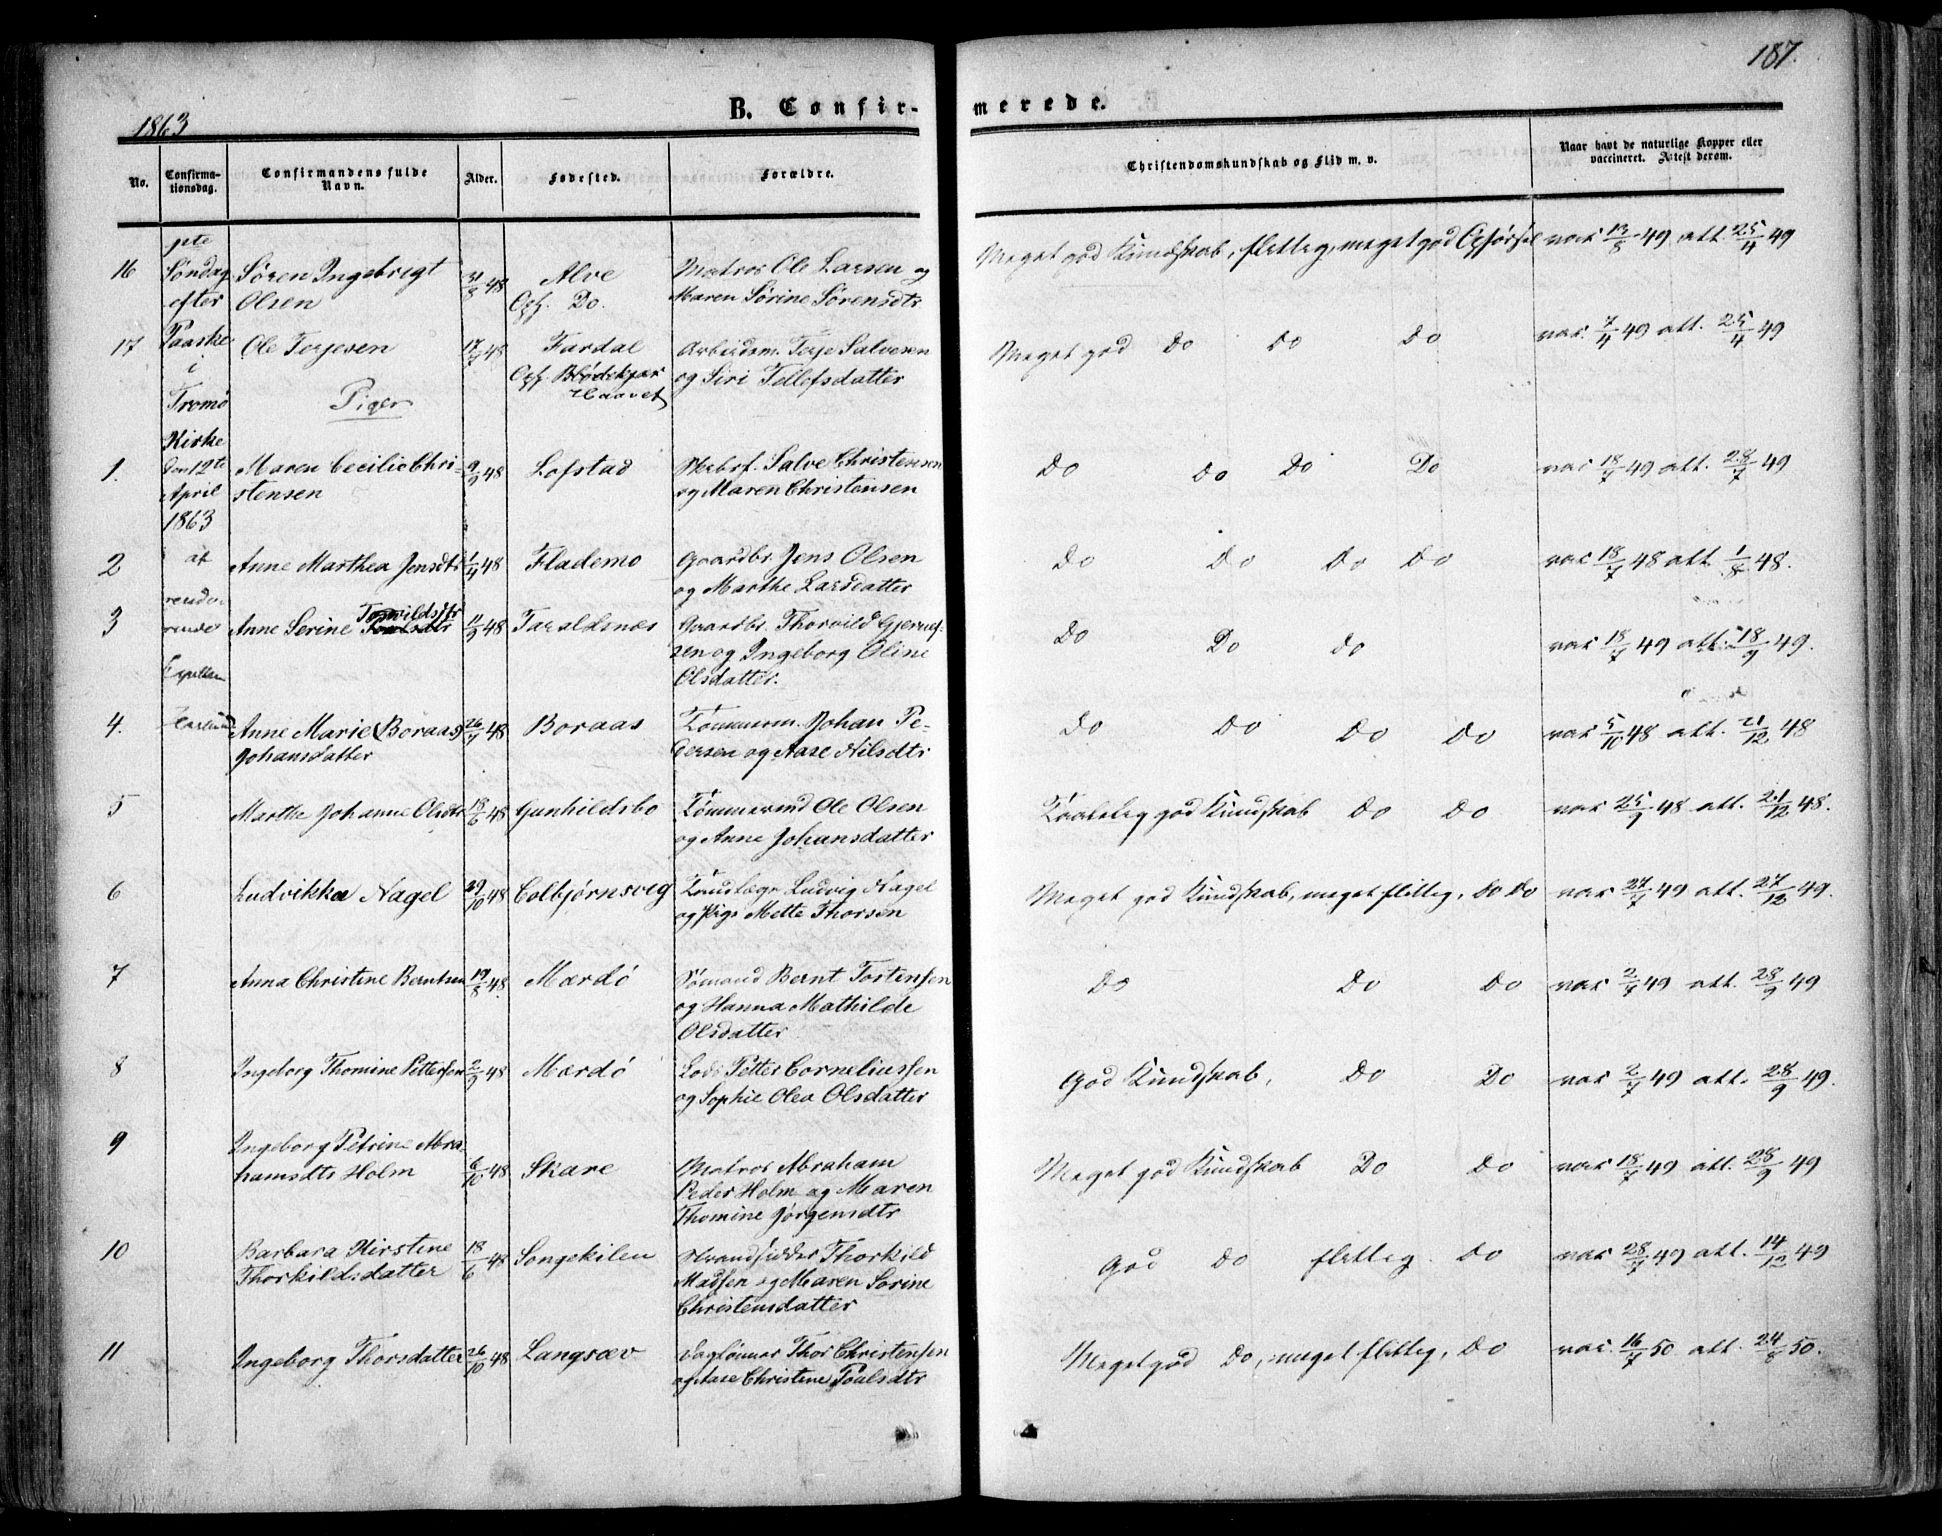 187.
1863
B. Confirmerede.
No. Confirmationsdag. Confirmandens fulde Navn. Alder. Fødested. Forældre. Christendomskundskab og Flid m. v. Naar havt de naturlige Kopper eller vaccineret. Attest derom.
1ste
Søndag
efter
Paaske
i
Tromø
Kirke
den 12te
April
1863
af
16 Søren Ingebrigt Olsen 48 Alve Opf. Do. Matros Ole Larsen og Maren Sørine Sørensdtr Meget god Kundskab, flittig, meget god Opførsel vac 49 att. 25/4 49
17 Ole Terjesen 17/7 48 Fardal Opf. Blødekjær Arbeidsm. Terje Salvesen og Siri Tellefsdatter Meget god Do Do Do vac. 7/4 49 att. 25/4 49
Piger
1. Maren Cecilie Christensen 9/9 48 Lofstad Salve Christensen og Maren Christensen Do Do Do Do vac 18/7 49 att. 28/7 49
2 Anne Marthea Jensdtr 1/4 48 Flademo Gaardbr. Jens Olsen og Marthe Larsdatter Do Do Do Do vac 18/7 48 att. 1/8 48.
3 Anne Serine Torvildsdtr 11/9 48 Taraldsnæs Gaardbr. Thorvild og Ingeborg Oline Olsdatter. Do Do Do vac 18/7 49 att. 18/9 49.
4. Anne Marie (Boraas) Johansdatter 26/7 48 Boraas Tømmerm. Johan Petersen og Aase Nilsdtr Do Do Do Do vac 5/10 48 att. 21/12 48
5 Marthe Johanne Olsdtr 18/6 48 Gunhildsbo Tømmermd Ole Olsen og Anne Johansdatter Taalelig god Kundskab Do Do vac 25/9 48 att. 21/12 48.
6 Ludvikka Nagel 29/10 48 Colbjørnsvig Ludvig Nagel og Pige Mette Thorsen Meget god Kundskab, meget flittig, Do Do vac 27/7 49 att. 27/12 49.
7 Anna Christine Berntsen 19/8 48. Mærdø Sømand Bernt Tostensen og Hanna Mathilde Olsdatter Do Do Do vac 2/7 49 att. 28/9 49
8 Ingeborg Thomine Pettersen 2/9 48 Mærdø Lods Petter Corneliussen og Sophie Olea Olsdatter God Kundskab, Do Do vac 2/7 49 att. 28/9 49.
9 Ingeborg Petrine Abrahamsdtr Holm 6/10 48 Skare Matros Abraham Peder Holm og Maren Thomine Jørgensdtr Meget god Kundskab Do Do vac 18/7 49 att. 28/9 49
10 Barbara Kirstine Thorkildsdatter 18/6 48 Songekilen Strandsidder Thorkild Madsen og Maren Sorine Christensdatter God Do flittig Do vac 28/7 49 att. 14/12 49
11 Ingeborg Thorsdatter 26/10 48 Langsæv Daglønner Thor Christensen og Aase Christine Poulsdtr Meget god Do, meget flittig, Do vac. 16/7 50 att. 24/8 50.